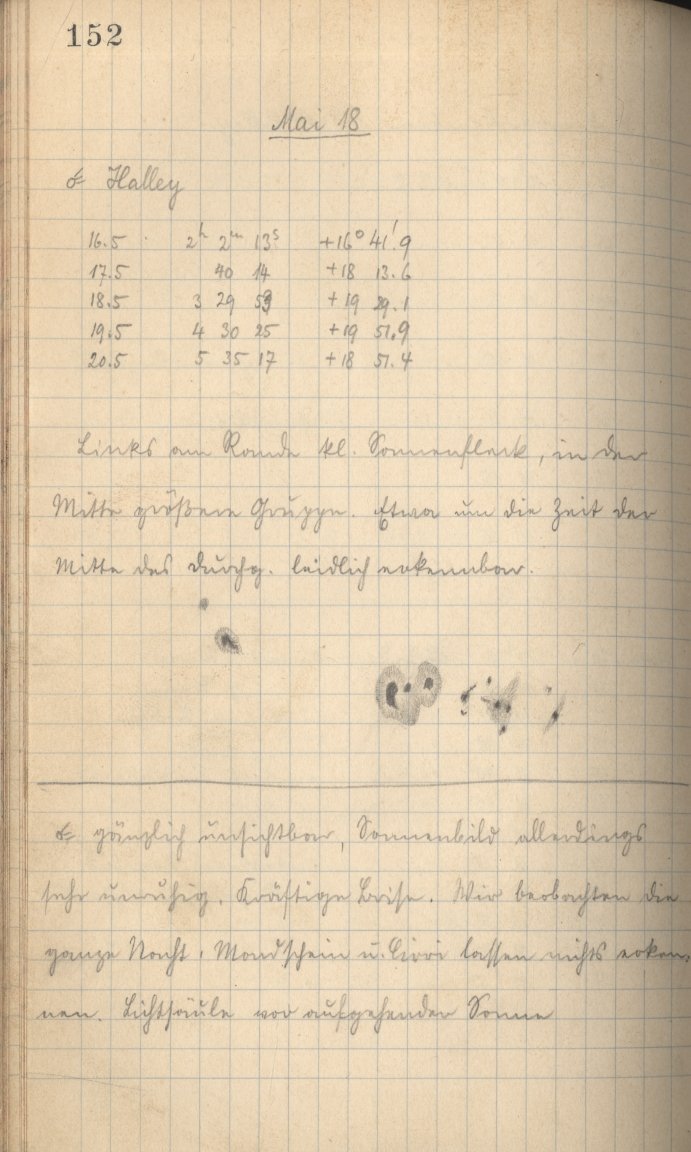 152
Mai 18
☄ Halley
16.5 2h 2m 13s +16° 41'.9
17.5 40 14 +18 13.6
18.5 3 29 59 +19 29.1
19.5 4 30 25 +19 51.9
20.5 5 35 17 +18 51.4
Links am Rande kl. Sonnenfleck, in der
Mitte größere Gruppe. Etwa um die Zeit der
Mitte des Durchg. leidlich erkennbar.
☄ gänzlich unsichtbar, Sonnenbild allerdings
sehr unruhig. Kräftige Brise. Wir beobachten die
ganze Nacht. Mondschein u. Cirri lassen nichts erken-
nen. Lichtsäule vor aufgehender Sonne